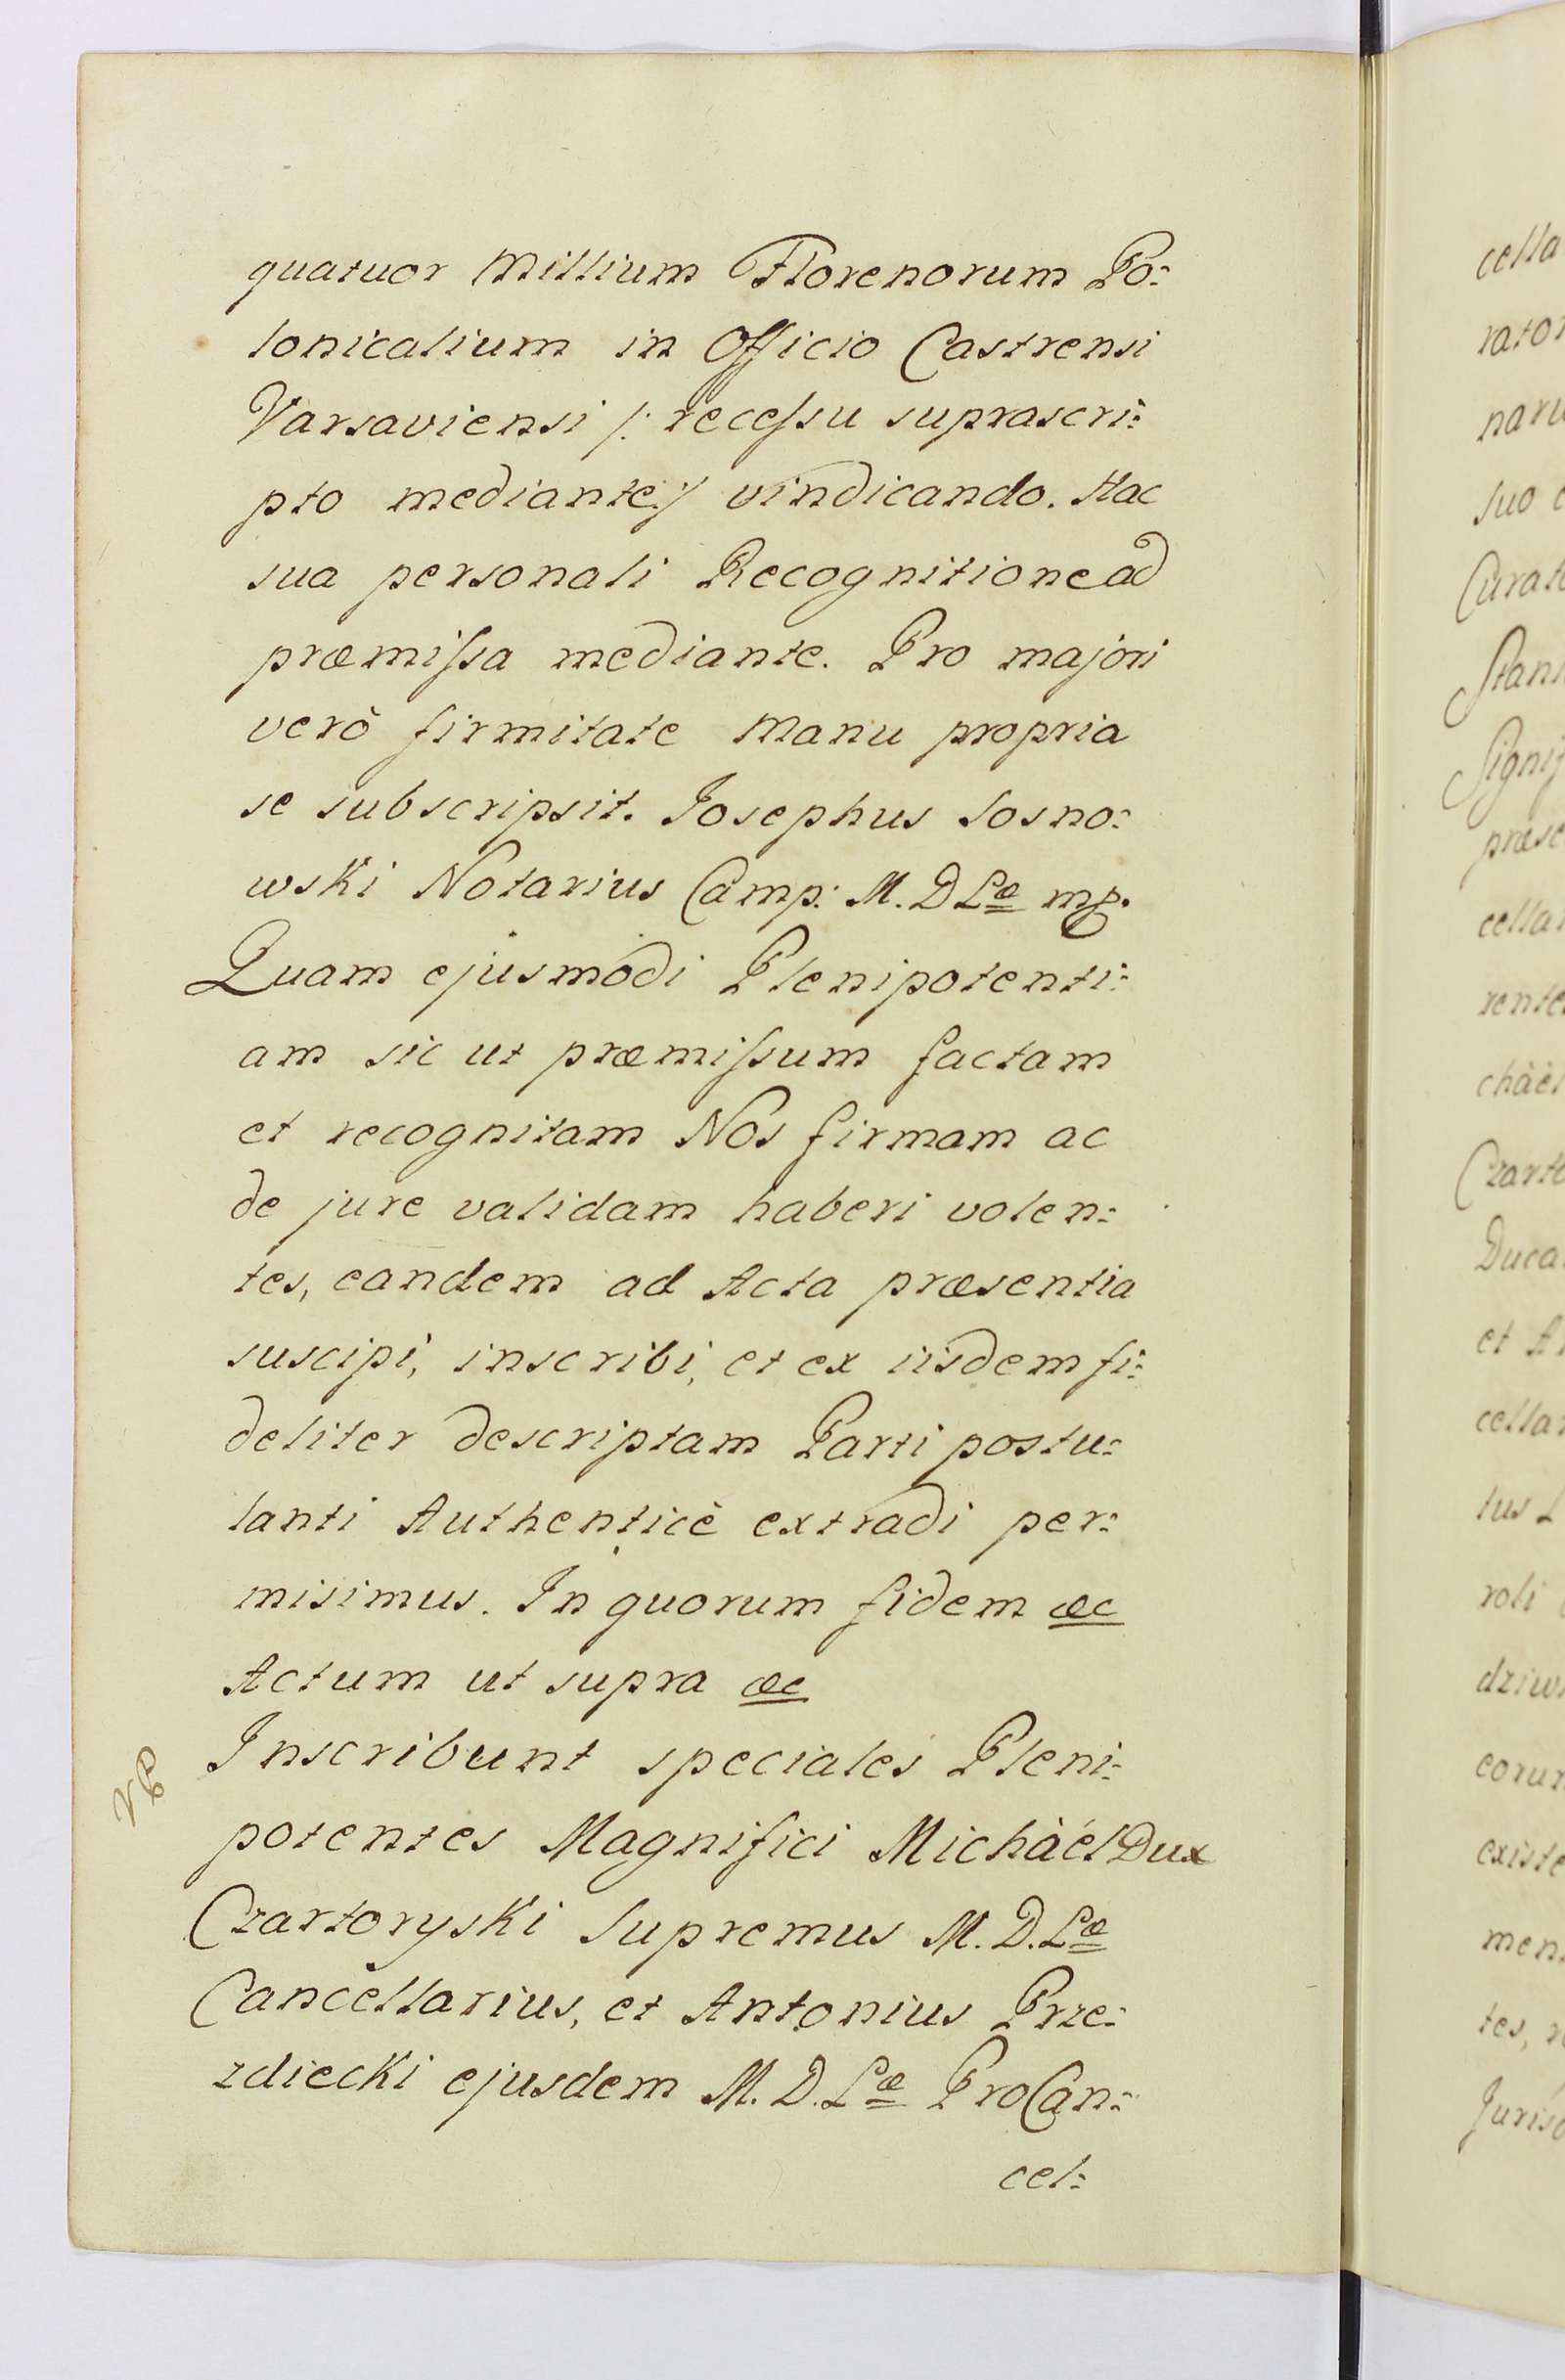 quatuor Millium Florenorum Po:
lonicalium in Officio Castrensi
Varsaviensi /: recessu suprascri:
pto mediante :/ vindicando. Hac
sua personali Recognitione ad
præmissa mediante. Pro majori
verò firmitate Manu propria
se subscripsit. Josephus Sosno:
wski Notarius Camp: M. D Læ mp.
Quam ejusmodi Plenipotenti:
am sic ut præmissum factam
et recognitam Nos firmam ac
de jure validam haberi volen:
tes, eandem ad Acta præsentia
suscipi, inscribi, et ex iisdem fi:
deliter descriptam Parti postu:
lanti Authenticè extradi per:
misimus. In quorum fidem &c
Actum ut supra &c
Inscribunt speciales Pleni:
potentes Magnifici Michàél Dux
Czartoryski Supremus M. D. Læ
Cancellarius, et Antonius Prze:
zdiecki ejusdem M. D. Læ ProCan:
cel:
cella
rator
naru
suo
Curat
Stani
Signif
præse
cella
rente
chàél
Czarto
Duca
et A
cella
tus L
roli
dziw
corum
existe
men
tes,
Jurisd